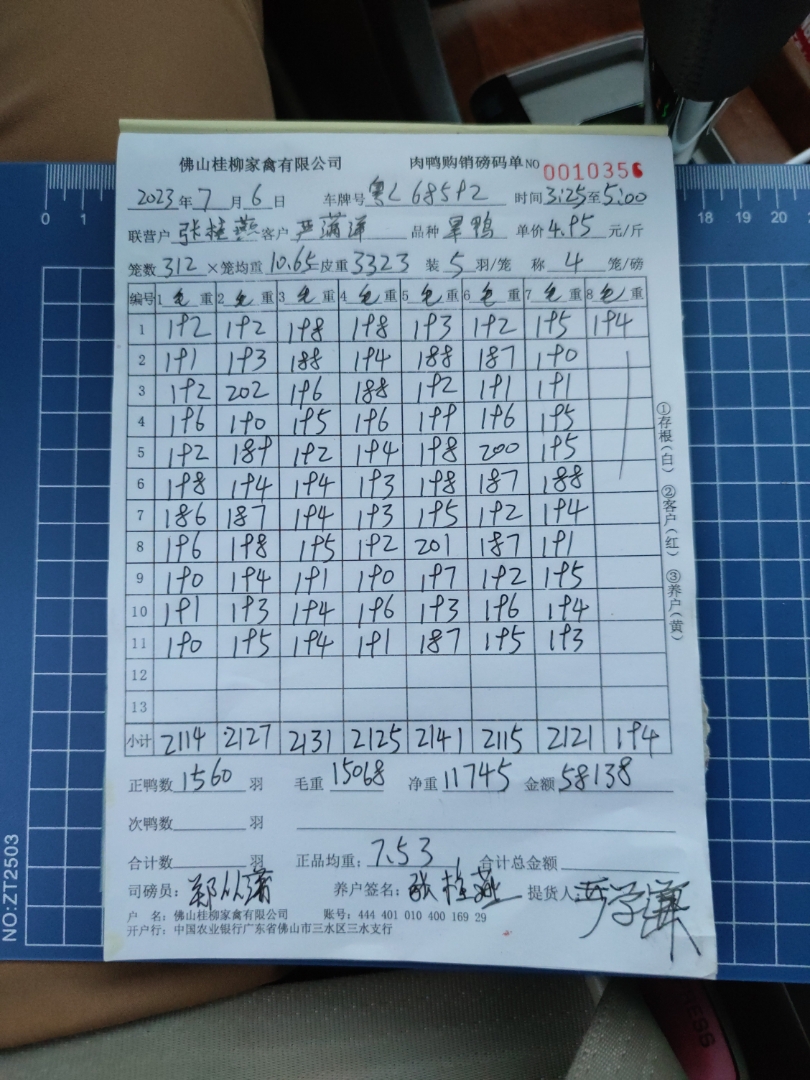 佛山桂柳家禽有限公司 肉鸭购销磅码单 NO 0010356
2023年7月6日 车牌号 粤L68592 时间3:25至5:00
联营户 张桂燕 客户 严满洋 品种 旱鸭 单价4.95元/斤
笼数312×笼均重10.65皮重3323 装5羽/笼 称4笼/磅
编号 1毛重 2毛重 3毛重 4毛重 5毛重 6毛重 7毛重 8毛重
1 192 192 198 198 193 192 195 194
2 191 193 188 194 188 187 190
3 192 202 196 188 192 191 191
4 196 190 195 196 199 196 195
5 192 189 192 194 198 200 195
6 198 194 194 193 198 187 188
7 186 187 194 193 195 192 194
8 196 198 195 192 201 187 191
9 190 194 191 190 197 192 195
10 191 193 194 196 193 196 194
11 190 195 194 191 187 195 193
12
13
小计 2114 2127 2131 2125 2141 2115 2121 194
正鸭数1560羽 毛重15068 净重11745 金额58138
次鸭数 羽
合计数 羽 正品均重：7.53 合计总金额
司磅员：郑从蒲 养户签名：张桂燕 提货人：
户 名：佛山桂柳家禽有限公司 账号：444 401 010 400 169 29
开户行：中国农业银行广东省佛山市三水区三水支行
①存根（白） ②客户（红） ③养户（黄）
0 1 18 19 20
NO:ZT2503